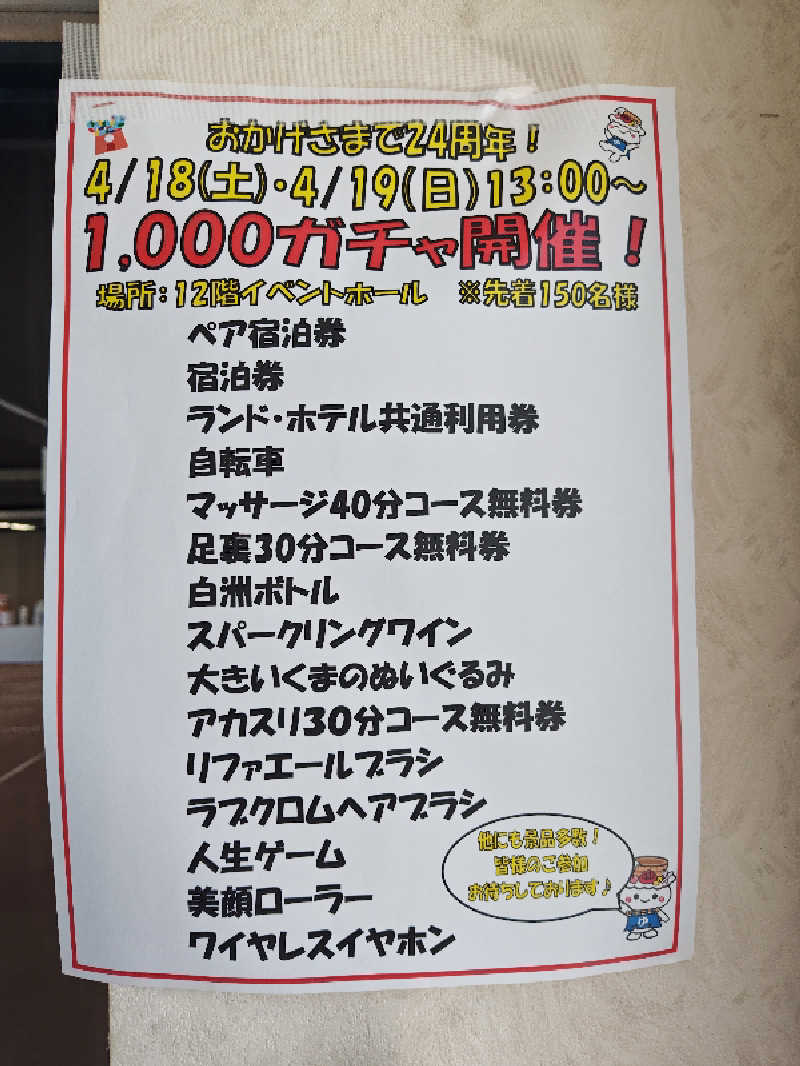 おかげさまで24周年！
4/18(土)・4/19(日)13:00～
1,000ガチャ開催！
場所：12階イベントホール　※先着150名様
ペア宿泊券
宿泊券
ランド・ホテル共通利用券
自転車
マッサージ40分コース無料券
足裏30分コース無料券
白洲ボトル
スパークリングワイン
大きいくまのぬいぐるみ
アカスリ30分コース無料券
リファエールブラシ
ラブクロムヘアブラシ
人生ゲーム
美顔ローラー
ワイヤレスイヤホン
他にも景品多数！
皆様のご参加
お待ちしております♪
ゆ